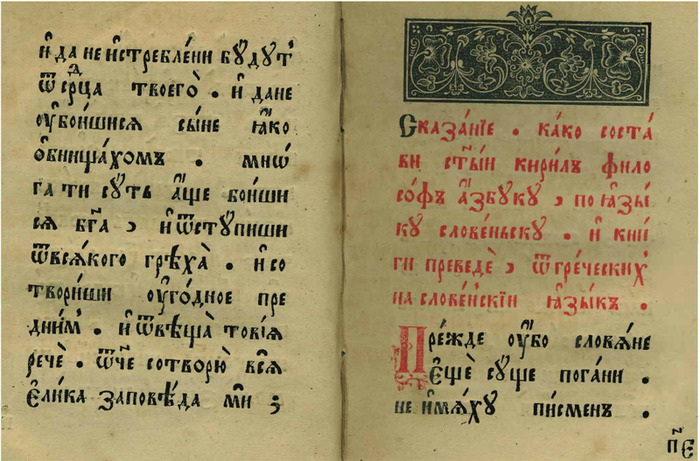 и҆ да не и҆стребле́ни бꙋ́дꙋтъ
ѿ се́рⷣца твоегѡ̀ . и҆ да не
ᲂу҆бои́шисѧ сы́не ꙗ҆́кѡ
ѻ҆бнища́хомъ . мнѡ́
га ти сꙋ́ть а҆́ще бои́ши
сѧ бг҃а , и҆ ѿстꙋ́пиши
ѿ всѧ́кого грѣха̀ . и҆ со
твори́ши ᲂу҆го́дное пре
дни́мъ . и҆ ѿвѣща̀ товїѧ
речѐ . ѿч҃е сотворю̀ всѧ̑
є҆ли́ка заповѣ́да ми ;
Сказа́нїе . ка́ко соста́
ви ст҃ы́и кири́лъ фило
со́фъ а҆́збꙋкꙋ , по ꙗ҆зы́
кꙋ слове́ньскꙋ . и҆ кни́
ги преведѐ , ѿ гре́ческихъ
на слове́нскїи ꙗ҆зы́къ .
Пре́жде ᲂу҆́бо словѧ́не
є҆щѐ сꙋ́ще пога́ни .
не и҆мѧ́хꙋ пи́сменъ .
п҃є